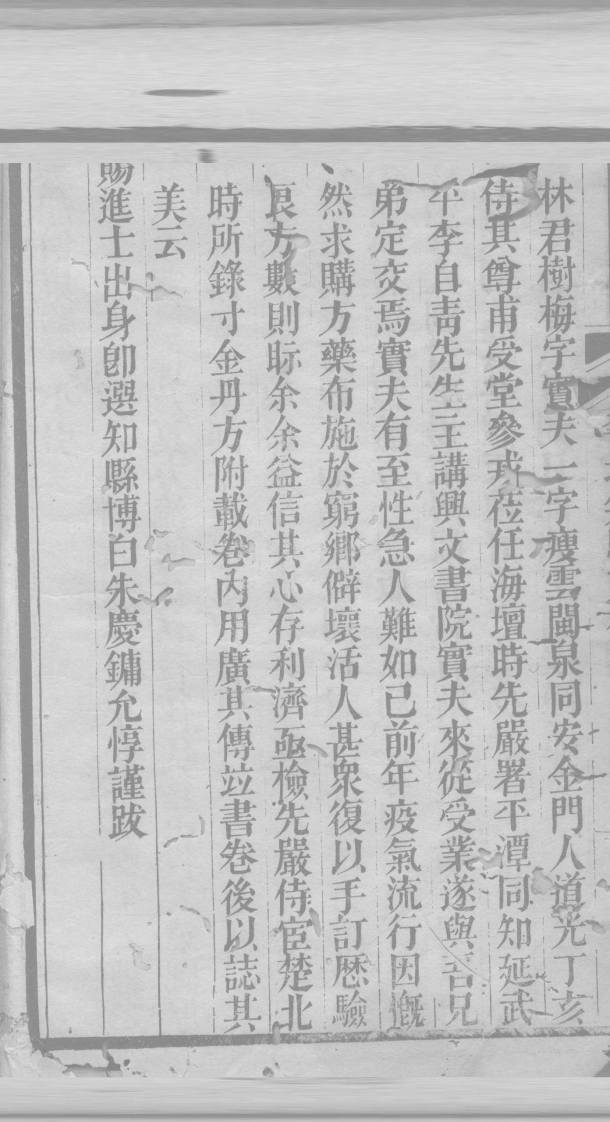 林君樹梅字實夫一字瘦雲閩泉同安金門人道光丁亥
侍其尊甫受堂參戎蒞任海壇時先嚴署平潭同知延武
平李自青先生主講興文書院實夫來從受業遂與吾兄
弟定交焉實夫有至性急人難如己前年疫氣流行因慨
然求購方藥布施於窮鄉僻壤活人甚衆復以手訂歷驗
良方數則眎余余益信其心存利濟亟檢先嚴侍宦楚北
時所錄寸金丹方附載卷內用廣其傳竝書卷後以誌其
美云
賜進士出身卽選知縣博白朱慶鏞允惇謹跋